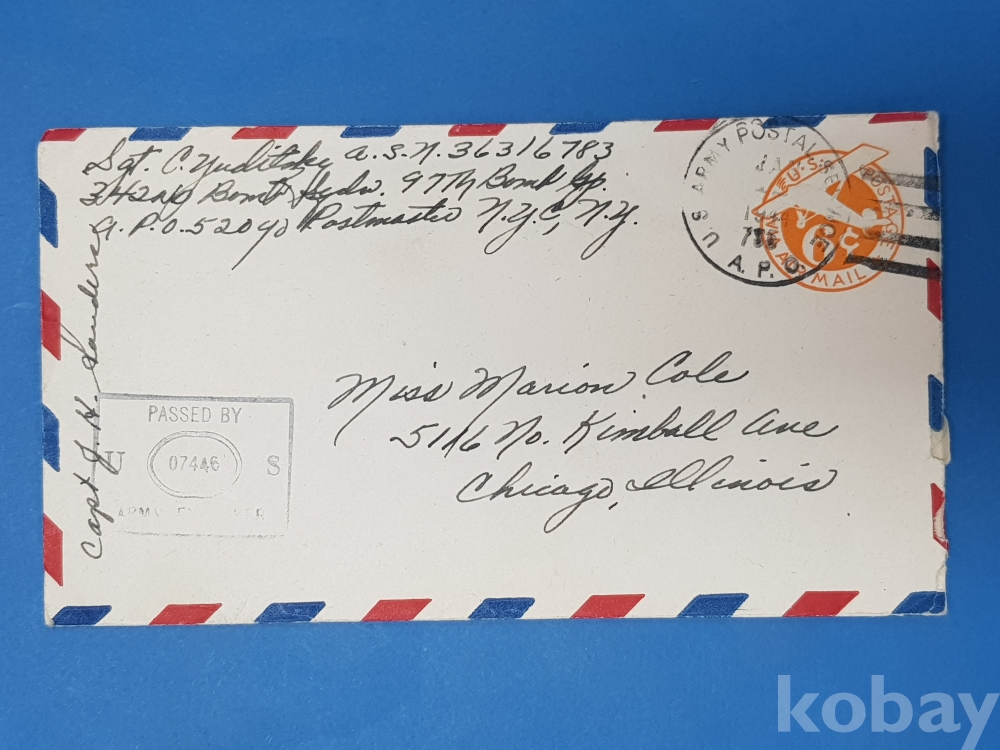 Sgt. C. Yuditsky A.S.N. 36316783
342nd Bomb Sqdn. 97th Bomb Gp.
A.P.O. 520 % Postmaster N.Y.C, N.Y.
Capt J. H. Sanders
U.S. ARMY POSTAL SERVICE
A.P.O.
U.S. POSTAGE
6 C
VIA AIR MAIL
Miss Marion Cole
5116 No. Kimball Ave
Chicago, Illinois
PASSED BY
U 07446 S
ARMY EXAMINER
kobay